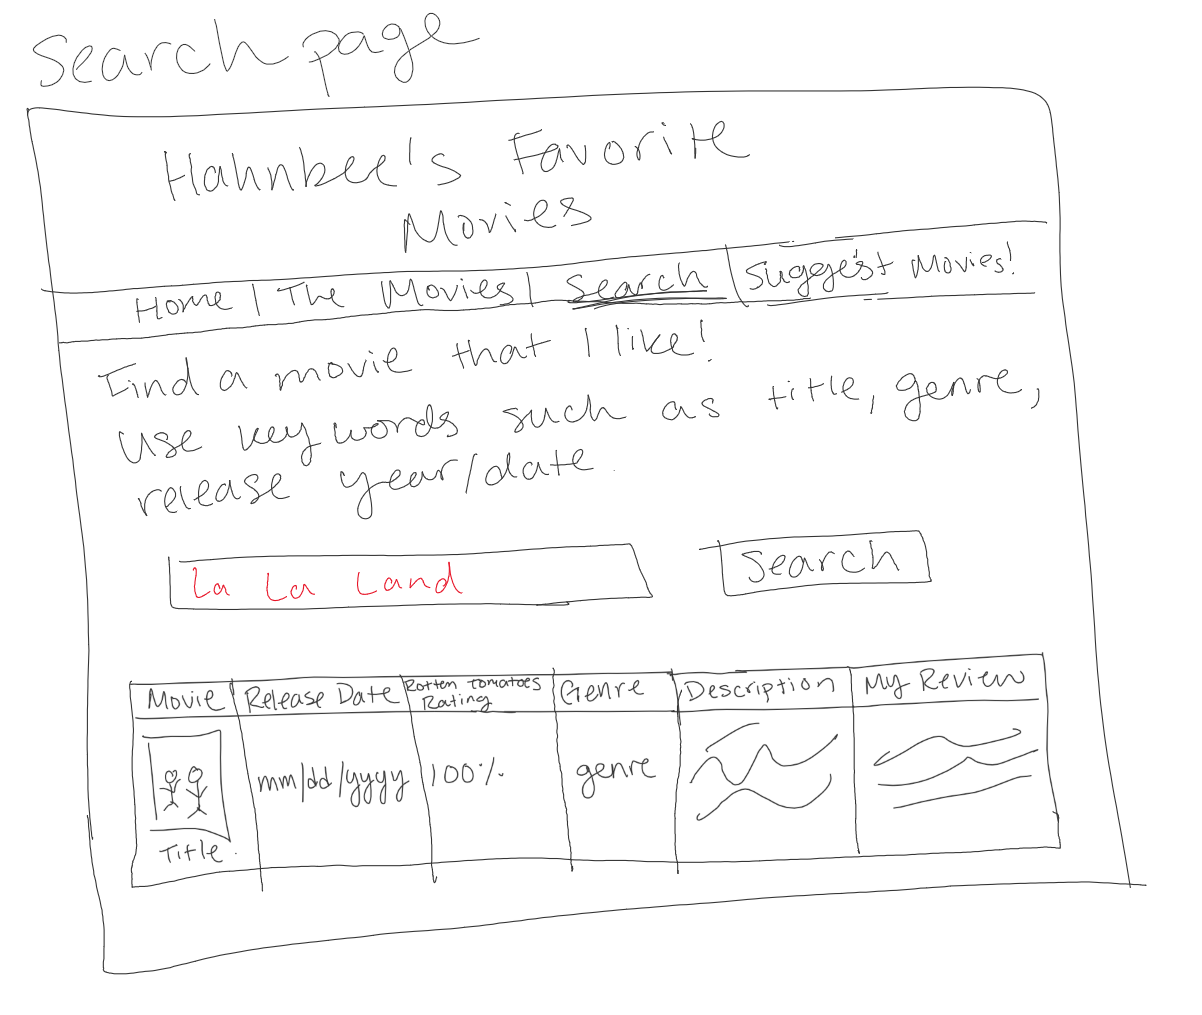 Search page
Hahnbee's Favorite
Movies
Home | The Movies | Search | Suggest Movies!
Find a movie that I like!
Use key words such as title, genre,
release year/date.
La La Land
Search
Movie
Release Date
Rotten tomatoes
Rating
Genre
Description
My Review
mm/dd/yyyy
100%
genre
Title.